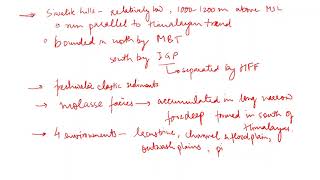 Siwalik hills - relatively low, 1000-1200m above MSL
run parallel to Himalayan trend
bounded in north by MBT
south by IGP
separated by HFF
freshwater clastic sediments
molasse facies → accumulated in long narrow
foredeep formed in south of
Himalayas
4 environments - lacustrine, channel & floodplain,
outwash plains, pi